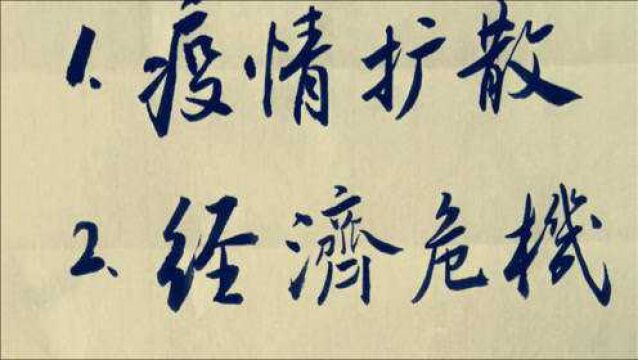 1.疫情扩散
2、经濟危機